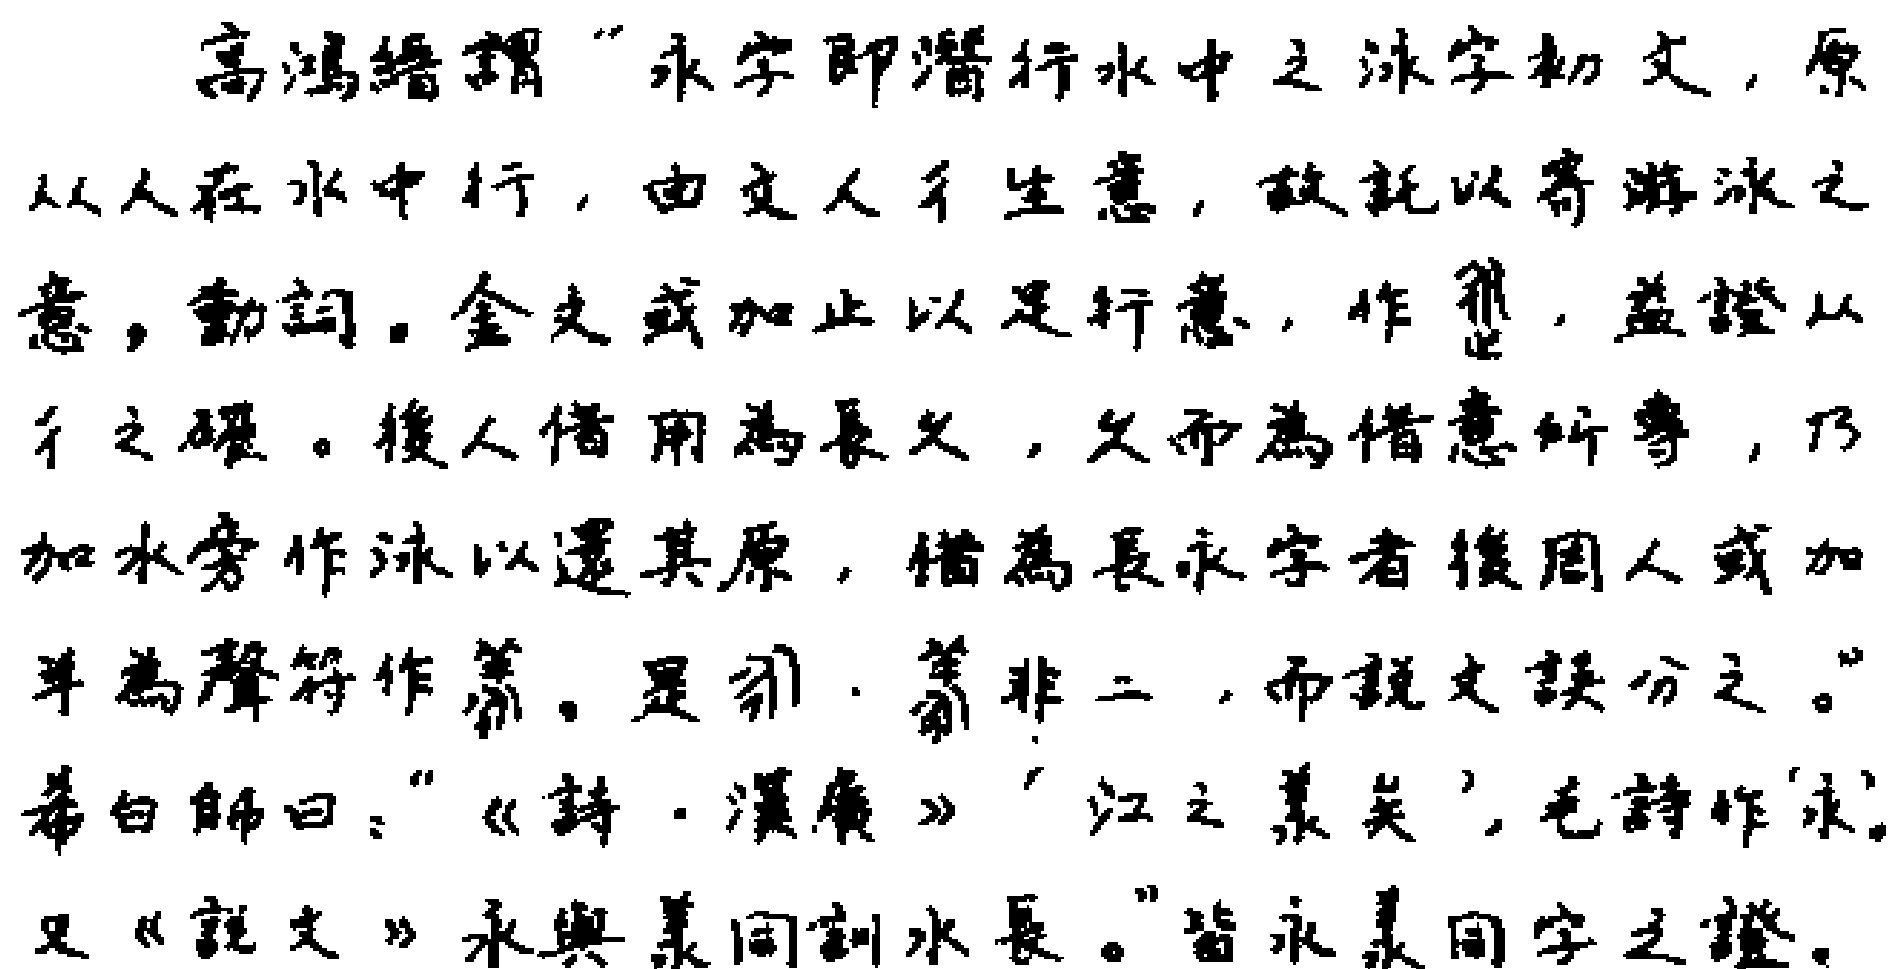 高鴻縉謂“永字即潛行水中之泳字初文，原
从人在水中行，由文人彳生意，故託以寄游泳之
意，動詞。金文或加止以足行意，作，益證从
彳之確。後人借用為長久，久而為借意所專，乃
加水旁作泳以還其原，借為長永字者後周人或加
羊為聲符作羕。是永·羕非二，而說文誤分之。”
希白師曰：“《詩·漢廣》‘江之羕矣’，毛詩作‘永’。
又《說文》永與羕同訓水長。”皆永羕同字之證。